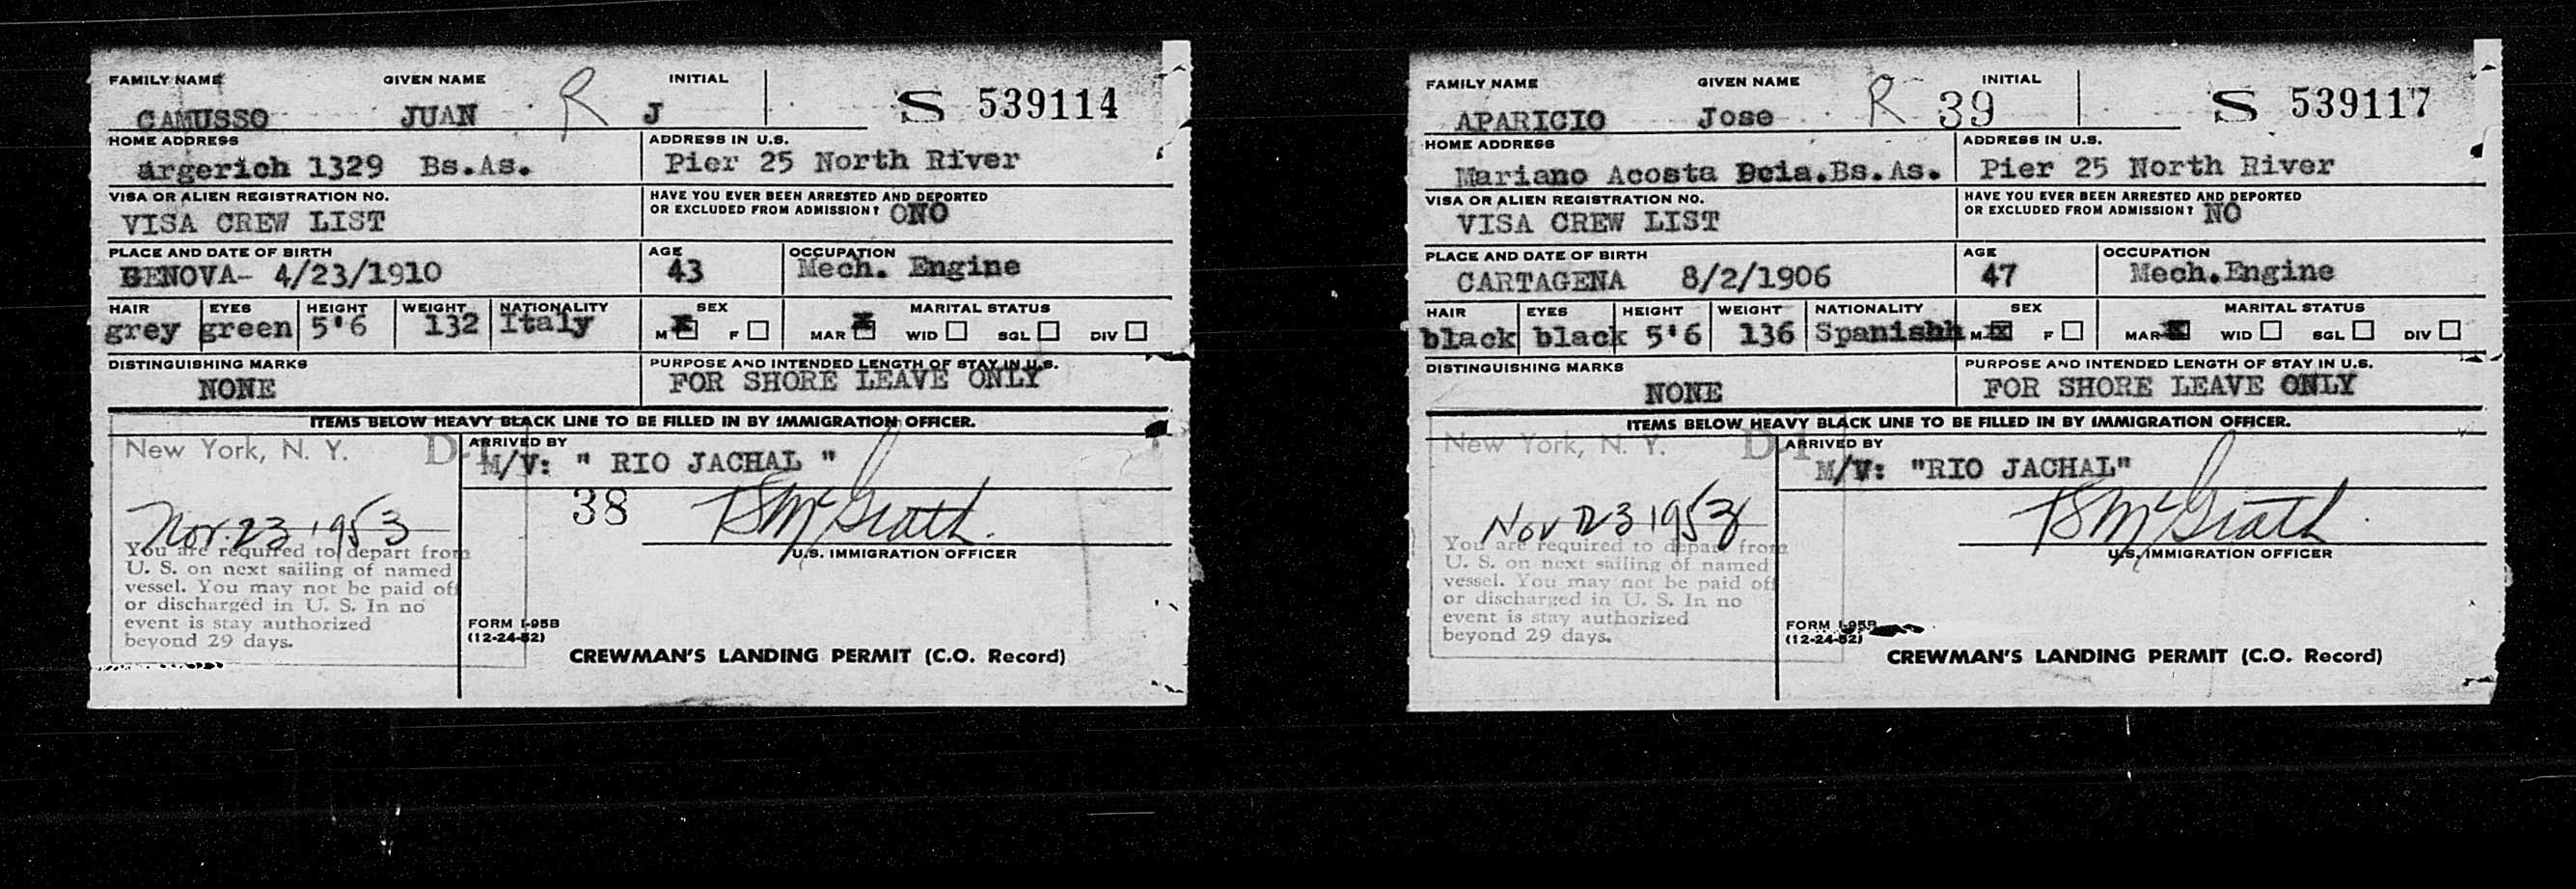 FAMILY NAME GIVEN NAME INITIAL
CAMUSSO JUAN R J S 539114
HOME ADDRESS ADDRESS IN U.S.
argerich 1329 Bs.As. Pier 25 North River
VISA OR ALIEN REGISTRATION NO. HAVE YOU EVER BEEN ARRESTED AND DEPORTED
OR EXCLUDED FROM ADMISSION? ONO
VISA CREW LIST
PLACE AND DATE OF BIRTH AGE OCCUPATION
GENOVA- 4/23/1910 43 Mech. Engine
HAIR EYES HEIGHT WEIGHT NATIONALITY SEX MARITAL STATUS
grey green 5'6 132 Italy M X F MAR X WID SGL DIV
DISTINGUISHING MARKS PURPOSE AND INTENDED LENGTH OF STAY IN U.S.
NONE FOR SHORE LEAVE ONLY
ITEMS BELOW HEAVY BLACK LINE TO BE FILLED IN BY IMMIGRATION OFFICER.
New York, N. Y. D-1 ARRIVED BY
M/V: " RIO JACHAL "
38
Nov. 23 1953 RSMcGrath
U.S. IMMIGRATION OFFICER
You are required to depart from
U. S. on next sailing of named
vessel. You may not be paid off
or discharged in U. S. In no
event is stay authorized
beyond 29 days.
FORM I-95B
(12-24-52)
CREWMAN'S LANDING PERMIT (C.O. Record)
FAMILY NAME GIVEN NAME INITIAL
APARICIO Jose R 39 S 539117
HOME ADDRESS ADDRESS IN U.S.
Mariano Acosta Pcia.Bs.As. Pier 25 North River
VISA OR ALIEN REGISTRATION NO. HAVE YOU EVER BEEN ARRESTED AND DEPORTED
OR EXCLUDED FROM ADMISSION? NO
VISA CREW LIST
PLACE AND DATE OF BIRTH AGE OCCUPATION
CARTAGENA 8/2/1906 47 Mech.Engine
HAIR EYES HEIGHT WEIGHT NATIONALITY SEX MARITAL STATUS
black black 5'6 136 Spanishh M X F MAR X WID SGL DIV
DISTINGUISHING MARKS PURPOSE AND INTENDED LENGTH OF STAY IN U.S.
NONE FOR SHORE LEAVE ONLY
ITEMS BELOW HEAVY BLACK LINE TO BE FILLED IN BY IMMIGRATION OFFICER.
New York, N. Y. D-1 ARRIVED BY
M/V: "RIO JACHAL"
Nov 23 1953 RSMcGrath
U.S. IMMIGRATION OFFICER
You are required to depart from
U. S. on next sailing of named
vessel. You may not be paid off
or discharged in U. S. In no
event is stay authorized
beyond 29 days.
FORM I-95B
(12-24-52)
CREWMAN'S LANDING PERMIT (C.O. Record)